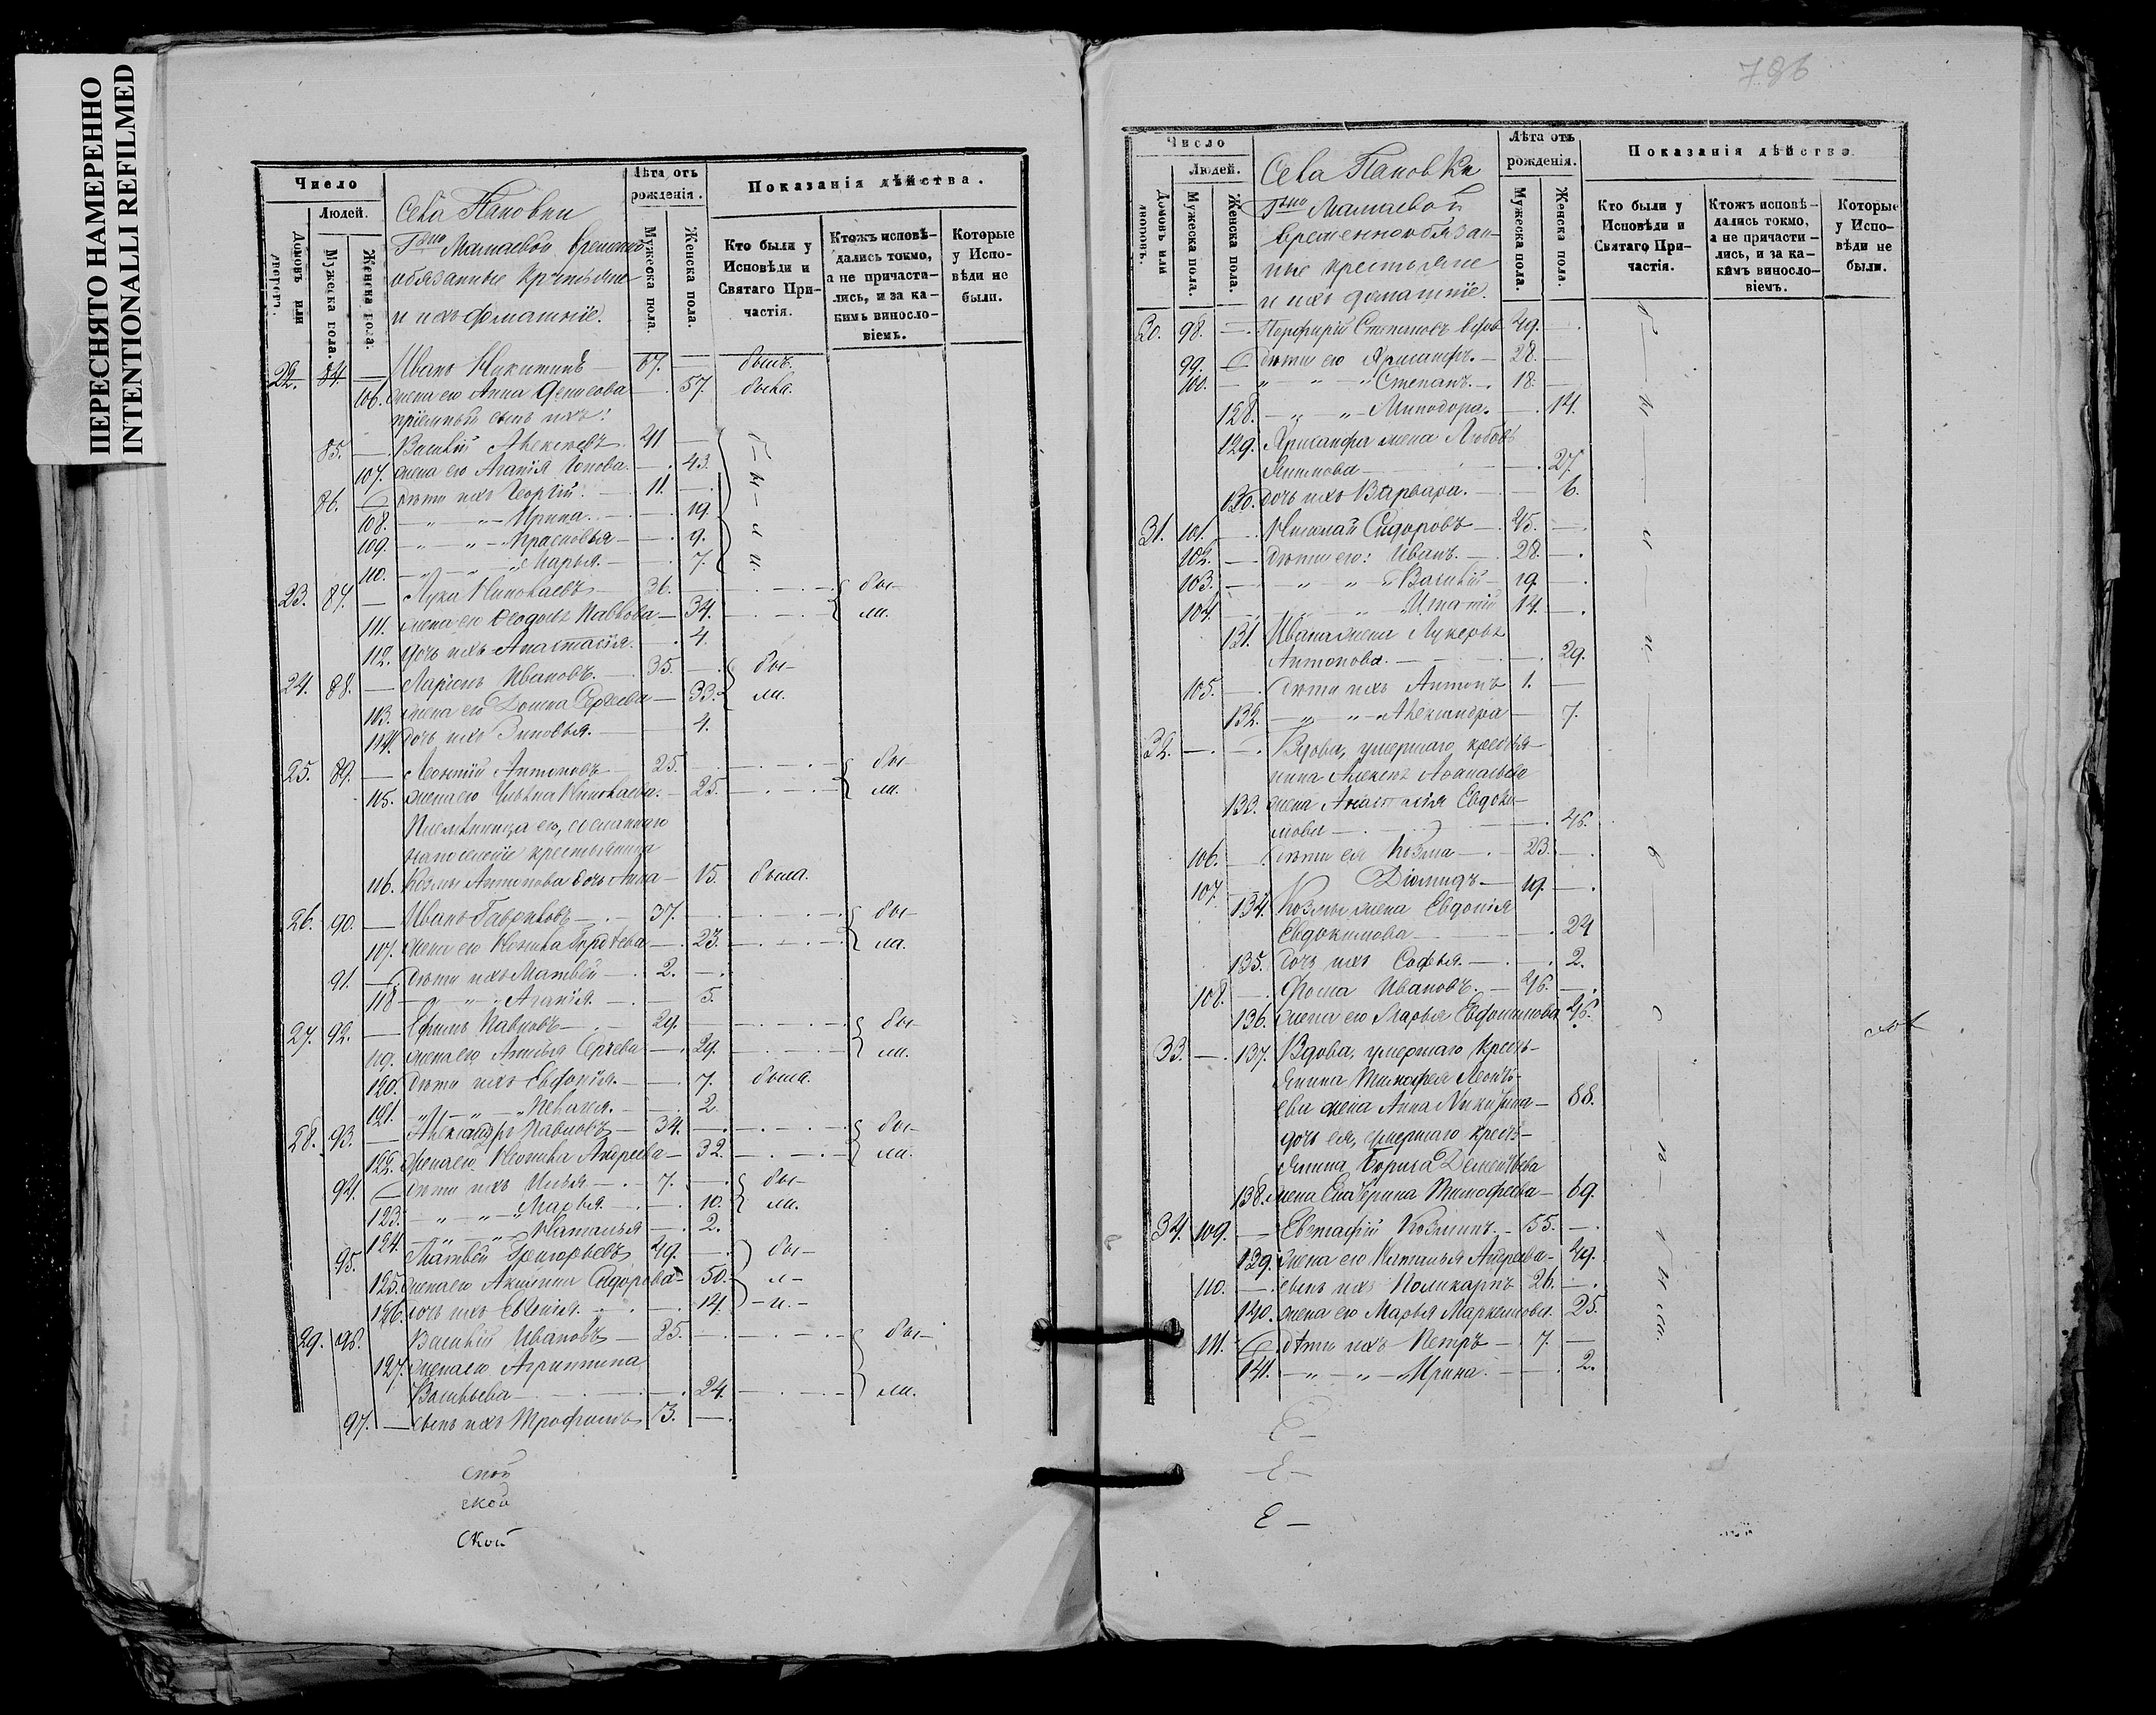 ПЕРЕСНЯТО НАМЕРЕННО
INTENTIONALLI REFILMED
Число
Людей.
Домовъ или
Мужеска пола.
Женска пола.
Села Пановки
Гжи Мамаевой временно
обязанные крестьяне
и ихъ домашніе.
Лѣта отъ
рожденія.
Мужеска пола.
Женска пола.
Показанія дѣйства.
Кто были у
Исповѣди и
Святаго При-
частія.
Ктожъ исповѣ-
дались токмо,
а не причасти-
лись, и за ка-
кимъ винословіемъ.
Которые
у Испо-
вѣди не
были.
22. 84. — Иванъ Никитинъ — 67. — былъ.
106. жена его Анна Денисова — 57. была.
пріемный сынъ ихъ:
85. — Василій Алексѣевъ 41 —
107. жена его Агапія Іонова — 43.
86. — дѣти ихъ Георгій. — 11. —
108. — „ — „ — Ирина. — 19.
109. — „ — „ — Прасковья — 9.
110. — „ — „ — Марья. — 7.
бы-ли
23. 87. — Лука Николаевъ — 36. — бы-
111. жена его Ѳеодосья Павлова — 34. — ли.
112. дочь ихъ Анастасія. — 4.
24. 88. — Ларіонъ Ивановъ. — 35. — бы-
113. жена его Домна Сергѣева — 33. ли.
114. дочь ихъ Зиновья. — 4.
25. 89. — Леонтій Антоновъ — 25. — бы-
115. жена его Ульяна Николаева. — 25. — ли.
Племянница его, сосланнаго
на поселеніе крестьянина
116. Козмы Антонова дочь Анна — 15. была.
26. 90. — Иванъ Гавриловъ — 37. — бы-
107. жена его — 23. — ли.
91. — дѣти ихъ Матвей — 2. —
118 — „ — „ — Агапія. — 5.
27. 92. — Ефимъ Павловъ — 29. — бы-
119. жена его Сергѣева — 29. — ли.
120. дѣти ихъ Евдокія. — 7. была.
121. — „ — „ — Пелагея. — 2.
28. 93. — Александръ Павловъ — 34. — бы-
122. жена его Андреева — 32. — ли.
94. — дѣти ихъ Илья — 7. — бы-
123. — „ — „ — Марья. — 10. ли.
124. — „ — „ — Наталья — 2.
95. Матвей Григорьевъ 49. — бы-
125. жена его Акилина Сидорова — 50. — л-
126. дочь ихъ Евгенія. — 14. — и. —
29. 96. Василій Ивановъ — 25. — бы-
127. жена его Агриппина
Васильева — 24. — ли.
97. — сынъ ихъ Трофимъ 3. —
ской
ской
ской
786
Число
Людей.
Домовъ или
дворовъ.
Мужеска пола.
Женска пола.
Села Пановки
Гжи Мамаевой
временнообязан-
ные крестьяне
и ихъ домашніе.
Лѣта отъ
рожденія.
Мужеска пола.
Женска пола.
Показанія дѣйства
Кто были у
Исповѣди и
Святаго При-
частія.
Ктожъ исповѣ-
дались токмо,
а не причасти-
лись, и за ка-
кимъ винословіемъ.
Которые
у Испо-
вѣди не
были.
30. 98. — Порфирій Степановъ вдовъ 49. —
99. — дѣти его Хрисанфъ. — 28. —
100. — „ — „ — Степанъ. — 18. —
128. — „ — „ — Минодора. — 14.
129. Хрисанфа жена Любовь
— 27.
130. дочь ихъ Варвара. — 6.
31. 101. — Николай Сидоровъ — 45. —
102. — дѣти его: Иванъ. — 28. —
103. — „ — „ — Василій — 19. —
104. — „ Игнатій 14. —
131. Ивана жена Лукерья
Антонова. — 29.
105. — дѣти ихъ Антонъ 1. —
132. — „ — „ — Александра — 7.
32. — — Вдова, умершаго крестья-
нина Алексея Аѳанасьева
133. жена Анастасія Евдоки-
мова — 46.
106. — дѣти ея Козма — 23. —
107. Діомидъ — 19. —
134. Козмы жена Евдокія
Евдокимова — 24
135. дочь ихъ Софья. — 2.
108. — Фома Ивановъ. — 46. —
136. жена его Марья Евдокимова 46.
33. — 137. Вдова, умершаго кресть-
янина Тимофея Леонть-
ева жена Анна Никитина — 88.
дочь ея, умершаго кресть-
янина Бориса Дементьева
138. жена Екатерина Тимофеева — 69.
34. 109. — Евстафій Козминъ. — 55. —
139. жена его Наталья Андреева — 49.
110. — сынъ ихъ Поликарпъ 26. —
140. жена его Марья Маркелова. 25.
111. — дѣти ихъ Петръ — 7. —
141. — „ — „ — Ирина. — 2.
Е —
Е —
Е —